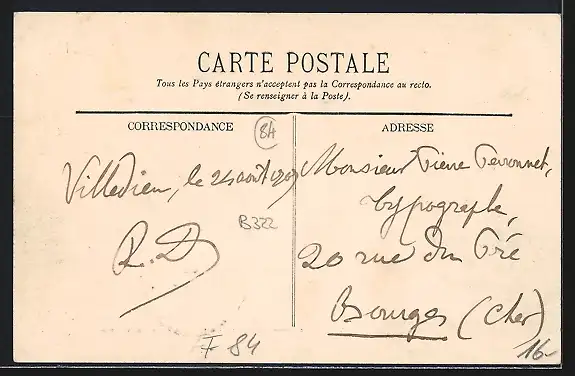 CARTE POSTALE
Tous les Pays étrangers n'acceptent pas la Correspondance au recto.
(Se renseigner à la Poste).
CORRESPONDANCE
84
ADRESSE
Villedieu, le 24 août
R.D
B322
Monsieur Pierre
typographe,
20 rue du Pré
Bourges (Cher)
F 84
16-